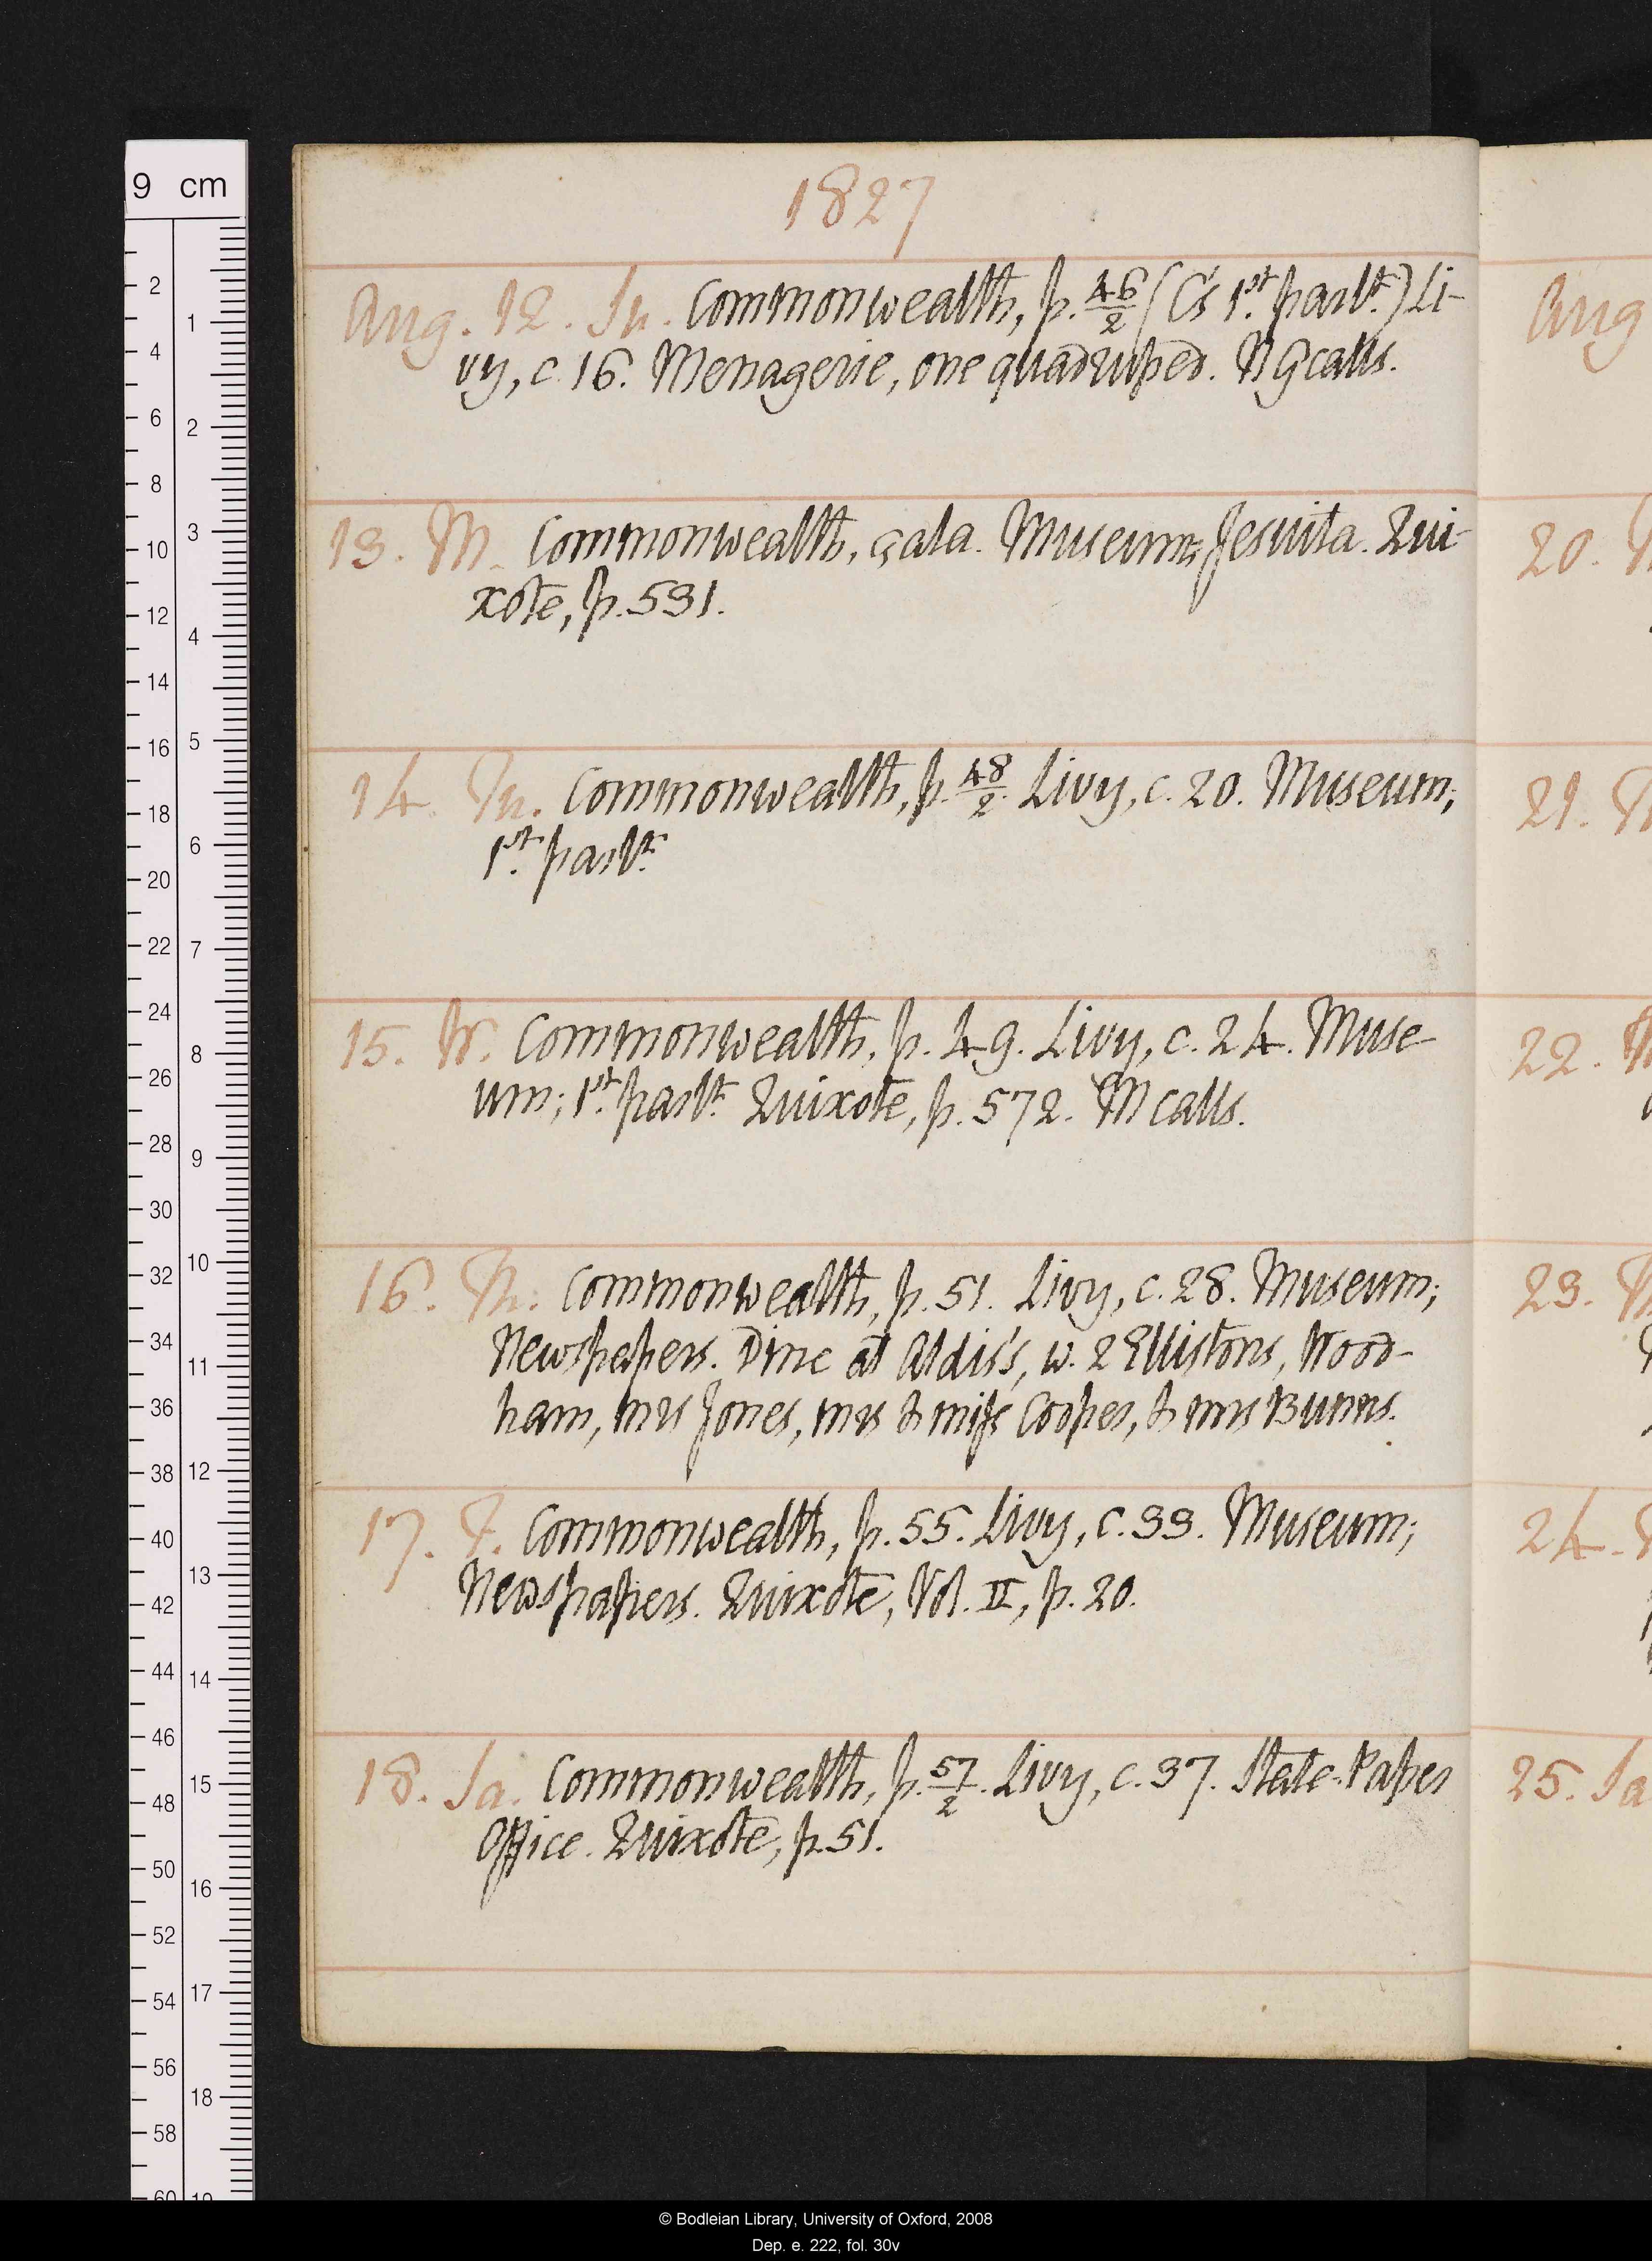 1827
Aug. 12. Su. Commonwealth, p. 46/2 (C's 1st parlt.) Li-
vy, c. 16. Menagerie, one quadruped. N G calls.
13. M. Commonwealth, çala. Museum; Jesuita. Qui-
xote, p. 531.
14. Tu. Commonwealth, p. 48/2. Livy, c. 20. Museum;
1st parlt.
15. W. Commonwealth, p. 49. Livy, c. 24. Muse-
um; 1st parlt. Quixote, p. 572. M calls.
16. Th. Commonwealth, p. 51. Livy, c. 28. Museum;
Newspapers. Dine at Aldis's, w. 2 Ellistons, Wood-
ham, mrs Jones, mrs & miss Cooper, & mrs Bunns.
17. F. Commonwealth, p. 55. Livy, c. 33. Museum;
Newspapers. Quixote, Vol. II, p. 20.
18. Sa. Commonwealth, p. 57/2. Livy, c. 37. State-Paper
Office. Quixote, p. 51.
Aug
20.
21.
22.
23.
24.
25. Sa
9 cm
2 4 6 8 10 12 14 16 18 20 22 24 26 28 30 32 34 36 38 40 42 44 46 48 50 52 54 56 58 60
1 2 3 4 5 6 7 8 9 10 11 12 13 14 15 16 17 18 19
© Bodleian Library, University of Oxford, 2008
Dep. e. 222, fol. 30v